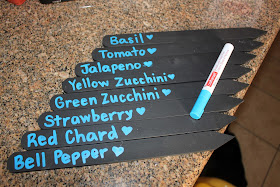 Basil ♥
Tomato ♥
Jalapeno ♥
Yellow Zucchini ♥
Green Zucchini ♥
Strawberry ♥
Red Chard ♥
Bell Pepper ♥